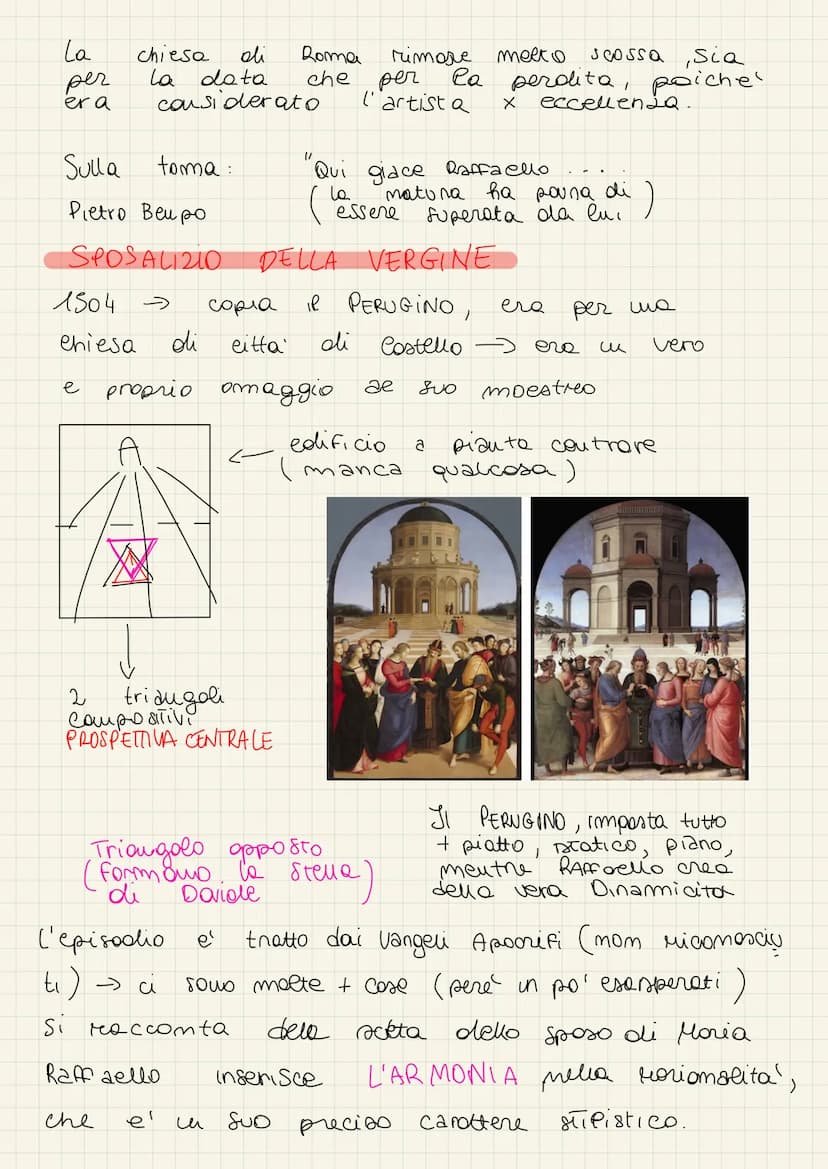 La chiesa di Roma rimase molto scossa, sia
per la data che per la perdita, poiche'
era considerato l'artista x eccellenza.
Sulla tomba: "Qui giace Raffaello ....
(la natura ha paura di
Pietro Bembo essere superata da lui)
SPOSALIZIO DELLA VERGINE
1504 → copia il PERUGINO, era per una
chiesa di citta' di Castello → era un vero
e proprio omaggio al suo maestro
← edificio a pianta centrale
(manca qualcosa)
2 triangoli
compositivi
PROSPETTIVA CENTRALE
Il PERUGINO, imposta tutto
+ piatto, statico, piano,
mentre Raffaello crea
della vera Dinamicità
Triangolo opposto
(formano la stella)
di Davide
L'episodio e' tratto dai Vangeli Apocrifi (non riconosciu
ti) → ci sono molte + cose (pero' un po' esasperati)
Si racconta della scelta dello sposo di Maria
Raffaello inserisce L'ARMONIA nella razionalita',
che e' un suo preciso carattere stilistico.